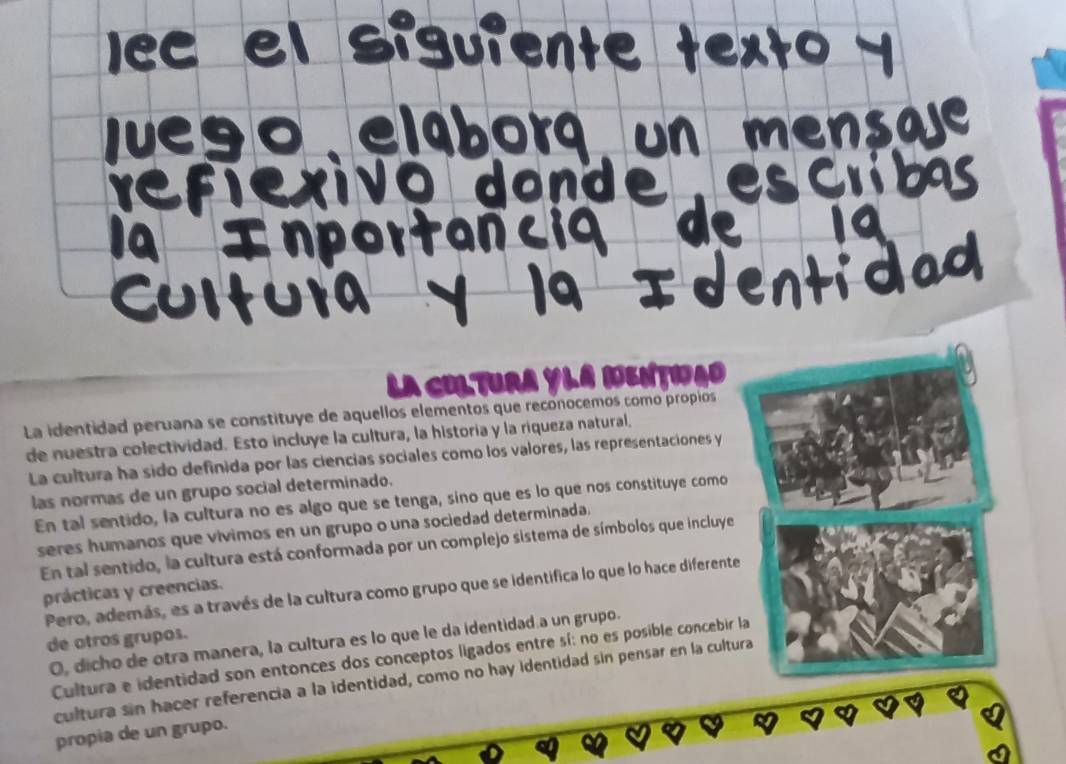 lee el siguiente texto y
luego, elabora un mensaje
reflexivo donde, escribas
la Inportancia de la
cultura y la Identidad
LA CULTURA Y LA IDENTIDAD
La identidad peruana se constituye de aquellos elementos que reconocemos como propios
de nuestra colectividad. Esto incluye la cultura, la historia y la riqueza natural.
La cultura ha sido definida por las ciencias sociales como los valores, las representaciones y
las normas de un grupo social determinado.
En tal sentido, la cultura no es algo que se tenga, sino que es lo que nos constituye como
seres humanos que vivimos en un grupo o una sociedad determinada.
En tal sentido, la cultura está conformada por un complejo sistema de símbolos que incluye
prácticas y creencias.
Pero, además, es a través de la cultura como grupo que se identifica lo que lo hace diferente
de otros grupos.
O, dicho de otra manera, la cultura es lo que le da identidad a un grupo.
Cultura e identidad son entonces dos conceptos ligados entre sí: no es posible concebir la
cultura sin hacer referencia a la identidad, como no hay identidad sin pensar en la cultura
propia de un grupo.